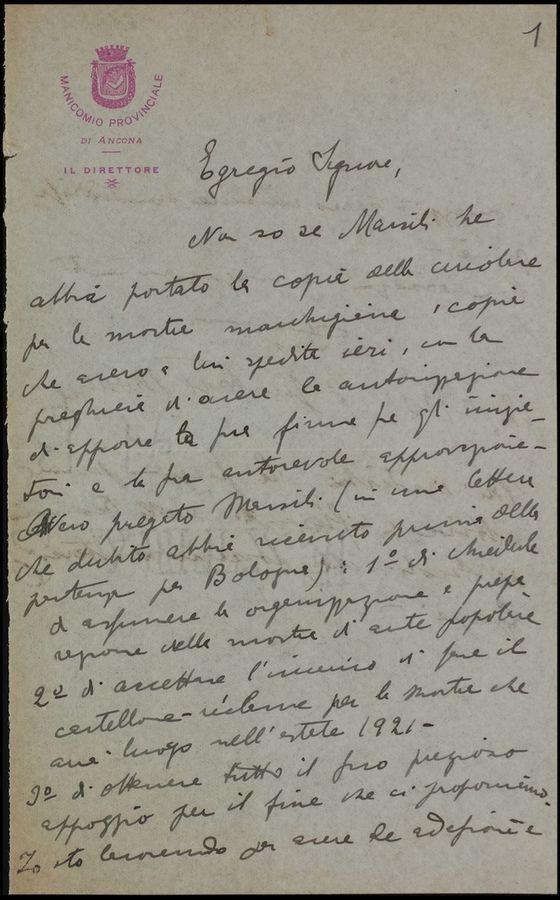 1
MANICOMIO PROVINCIALE
DI ANCONA
IL DIRETTORE
Egregio Signore,
Non so se Marsili he
abbia portato la copia della circolare
per la mostra marchigiana, copia
che avevo a lui spedita ieri, con la
preghiera d'avere la autorizzazione
di apporre la sua firma fra gl'inizia-
tori e la sua autorevole approvazione -
Avevo pregato Marsili (in una lettera
che dubito abbia ricevuto prima della
partenza per Bologna): 1º di chiederle
d'assumere la organizzazione e prepa
razione della mostra d'arte popolare
2º di accettare l'incarico di fare il
cartellone-réclame per la mostra che
avrà luogo nell'estate 1921-
3º di ottenere tutto il suo prezioso
appoggio per il fine che ci proponiamo
Io sto lavorando per avere le adesioni e